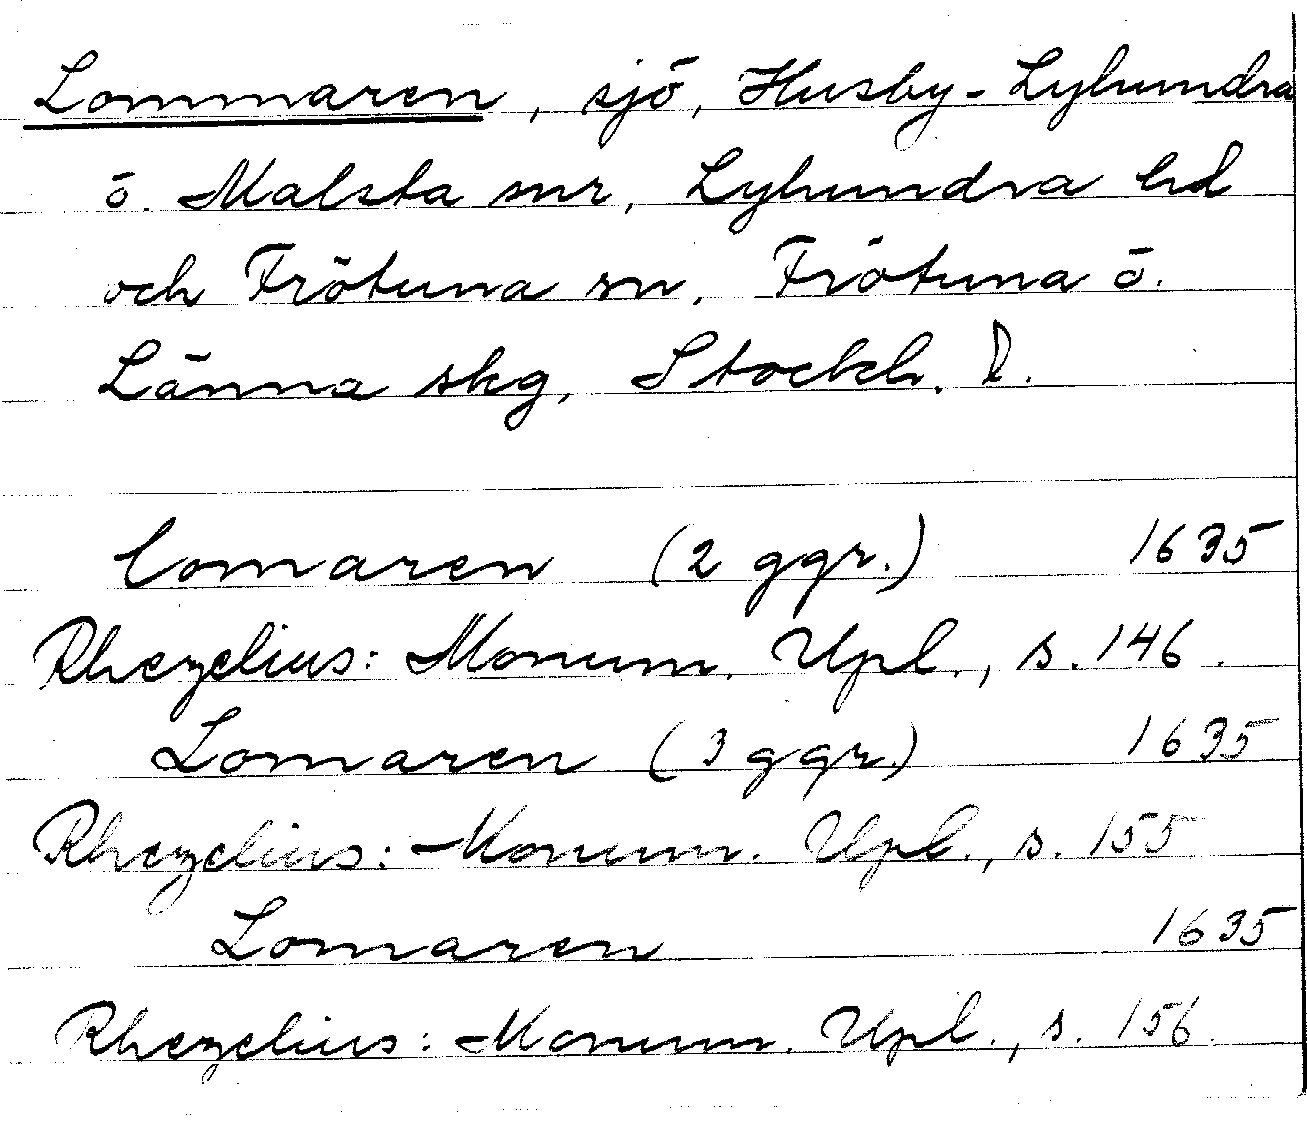 Lommaren, sjö, Husby-Lyhundra
o. Malsta snr, Lyhundra hd
och Frötuna sn, Frötuna o.
Länna skg, Stockh. l.
lomaren (2 ggr.) 1635
Rhezelius: Monum. Upl., s. 146.
Lomaren (3 ggr.) 1635
Rhezelius: Monum. Upl., s. 155
Lomaren 1635
Rhezelius: Monum. Upl., s. 156.